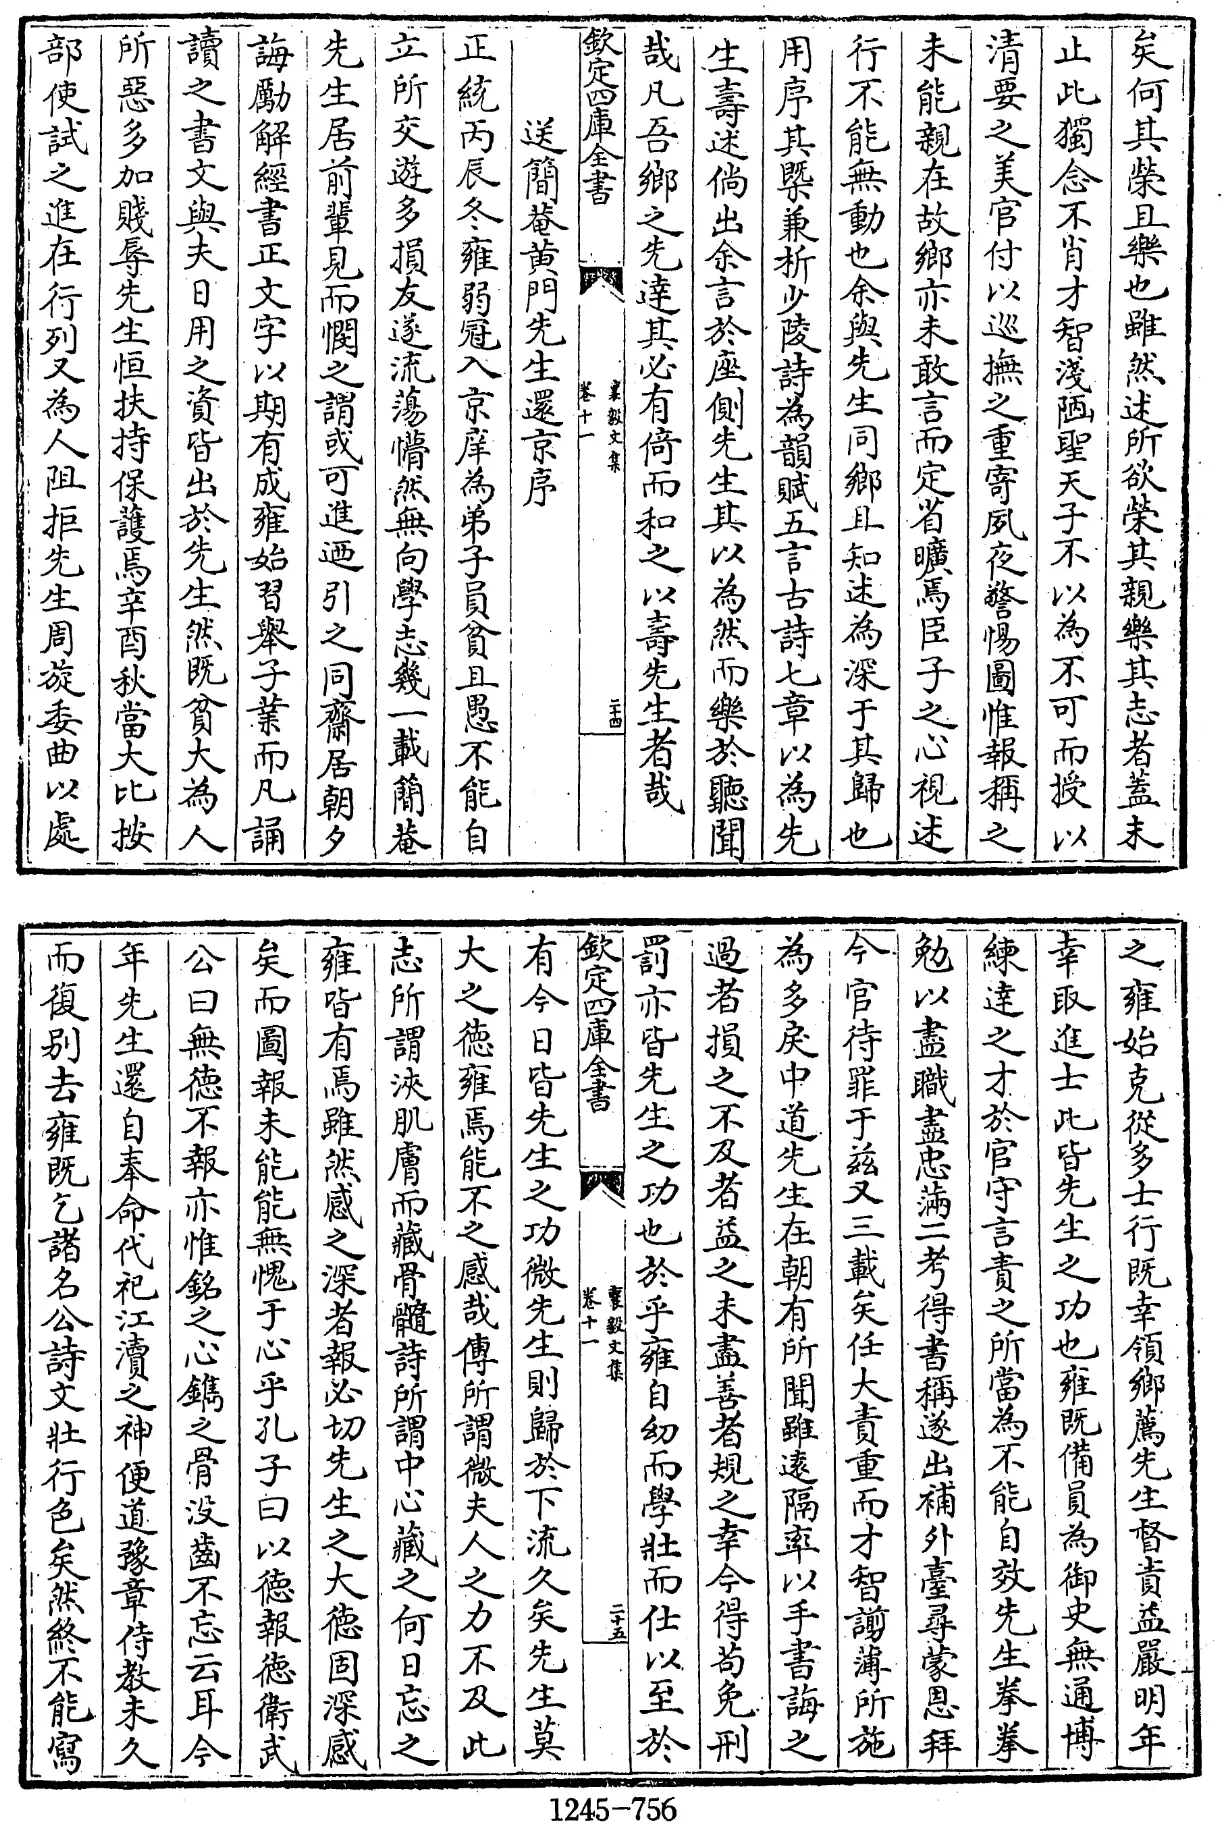 矣何其榮且樂也雖然述所欲榮其親樂其志者蓋未
止此獨念不肖才智淺陋聖天子不以為不可而授以
清要之美官付以巡撫之重寄夙夜警惕圖惟報稱之
未能親在故鄉亦未敢言而定省曠焉臣子之心視述
行不能無動也余與先生同鄉且知述為深于其歸也
用序其槩兼析少陵詩為韻賦五言古詩七章以為先
生壽述倘出余言於座側先生其以為然而樂於聽聞
哉凡吾鄉之先達其必有倚而和之以壽先生者哉
欽定四庫全書
襄毅文集
卷十一
二十四
送簡菴黄門先生還京序
正統丙辰冬雍弱冠入京庠為弟子員貧且愚不能自
立所交遊多損友遂流蕩懵然無向學志幾一載簡菴
先生居前輩見而憫之謂或可進迺引之同齋居朝夕
誨勵解經書正文字以期有成雍始習舉子業而凡誦
讀之書文與夫日用之資皆出於先生然既貧大為人
所惡多加賤辱先生恒扶持保護焉辛酉秋當大比按
部使試之進在行列又為人阻拒先生周旋委曲以處
之雍始克從多士行既幸領鄉薦先生督責益嚴明年
幸取進士此皆先生之功也雍既備員為御史無通博
練達之才於官守言責之所當為不能自效先生拳拳
勉以盡職盡忠滿二考得書稱遂出補外臺尋蒙恩拜
今官待罪于兹又三載矣任大責重而才智謭薄所施
為多戾中道先生在朝有所聞雖遠隔率以手書誨之
過者損之不及者益之未盡善者規之幸今得苟免刑
罰亦皆先生之功也於乎雍自幼而學壯而仕以至於
欽定四庫全書
襄毅文集
卷十一
二十五
有今日皆先生之功微先生則歸於下流久矣先生莫
大之德雍焉能不之感哉傳所謂微夫人之力不及此
志所謂浹肌膚而藏骨髓詩所謂中心藏之何日忘之
雍皆有焉雖然感之深者報必切先生之大德固深感
矣而圖報未能能無愧于心乎孔子曰以德報德衛武
公曰無德不報亦惟銘之心鐫之骨没齒不忘云耳今
年先生還自奉命代祀江瀆之神便道豫章侍教未久
而復别去雍既乞諸名公詩文壯行色矣然終不能寫
1245-756